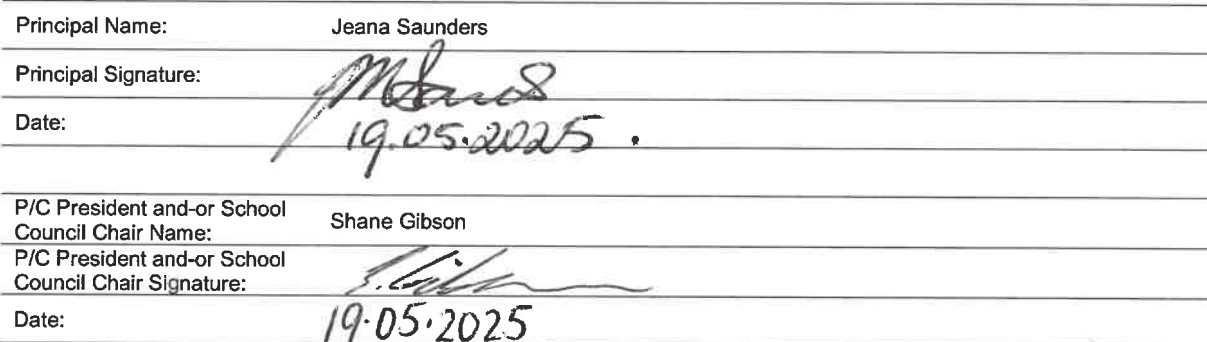 Principal Name: Jeana Saunders
Principal Signature:
Date: 19.05.2025
P/C President and-or School
Council Chair Name: Shane Gibson
P/C President and-or School
Council Chair Signature:
Date: 19.05.2025